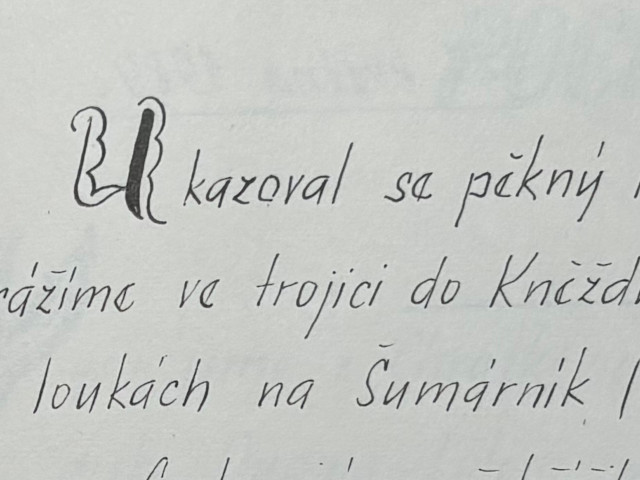 Ukazoval se pěkný
rážíme ve trojici do Kněžd
loukách na Šumárník